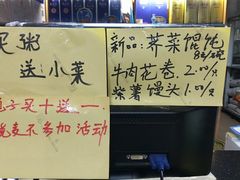 买粥
送小菜
子买十送一.
不参加活动
新品:荠菜馄饨
8元/碗
牛肉花卷.2.00/个
紫薯馒头1.00/个